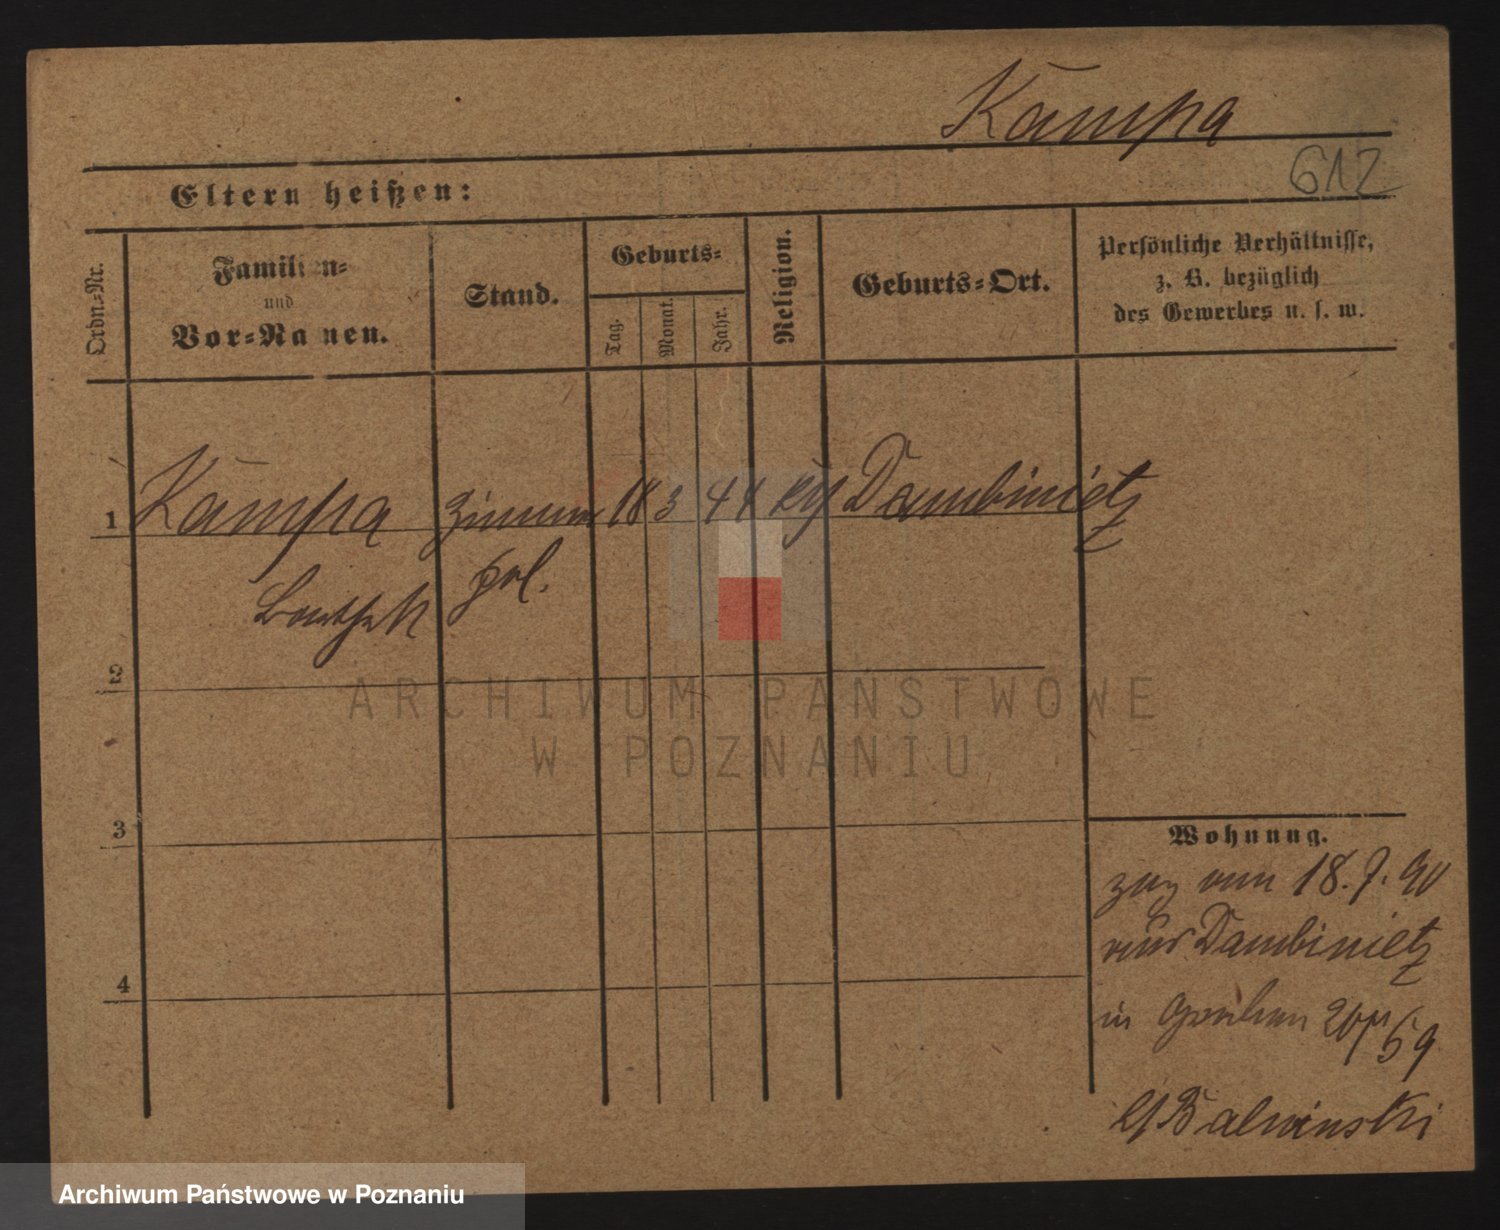 Kampa
612
Eltern heißen:
Ordn.=Nr.
Familien=
und
Vor=Namen.
Stand.
Geburts=
Tag.
Monat.
Jahr.
Religion.
Geburts=Ort.
Persönliche Verhältnisse,
z. B. bezüglich
des Gewerbes u. s. w.
1 Kampa Zimmer 18 3 44 Dambinietz
gsl.
2
ARCHIWUM PAŃSTWOWE
W POZNANIU
3
Wohnung.
zug vom 18. 7. 90
aus Dambinietz
4
in
Balwinski
Archiwum Państwowe w Poznaniu